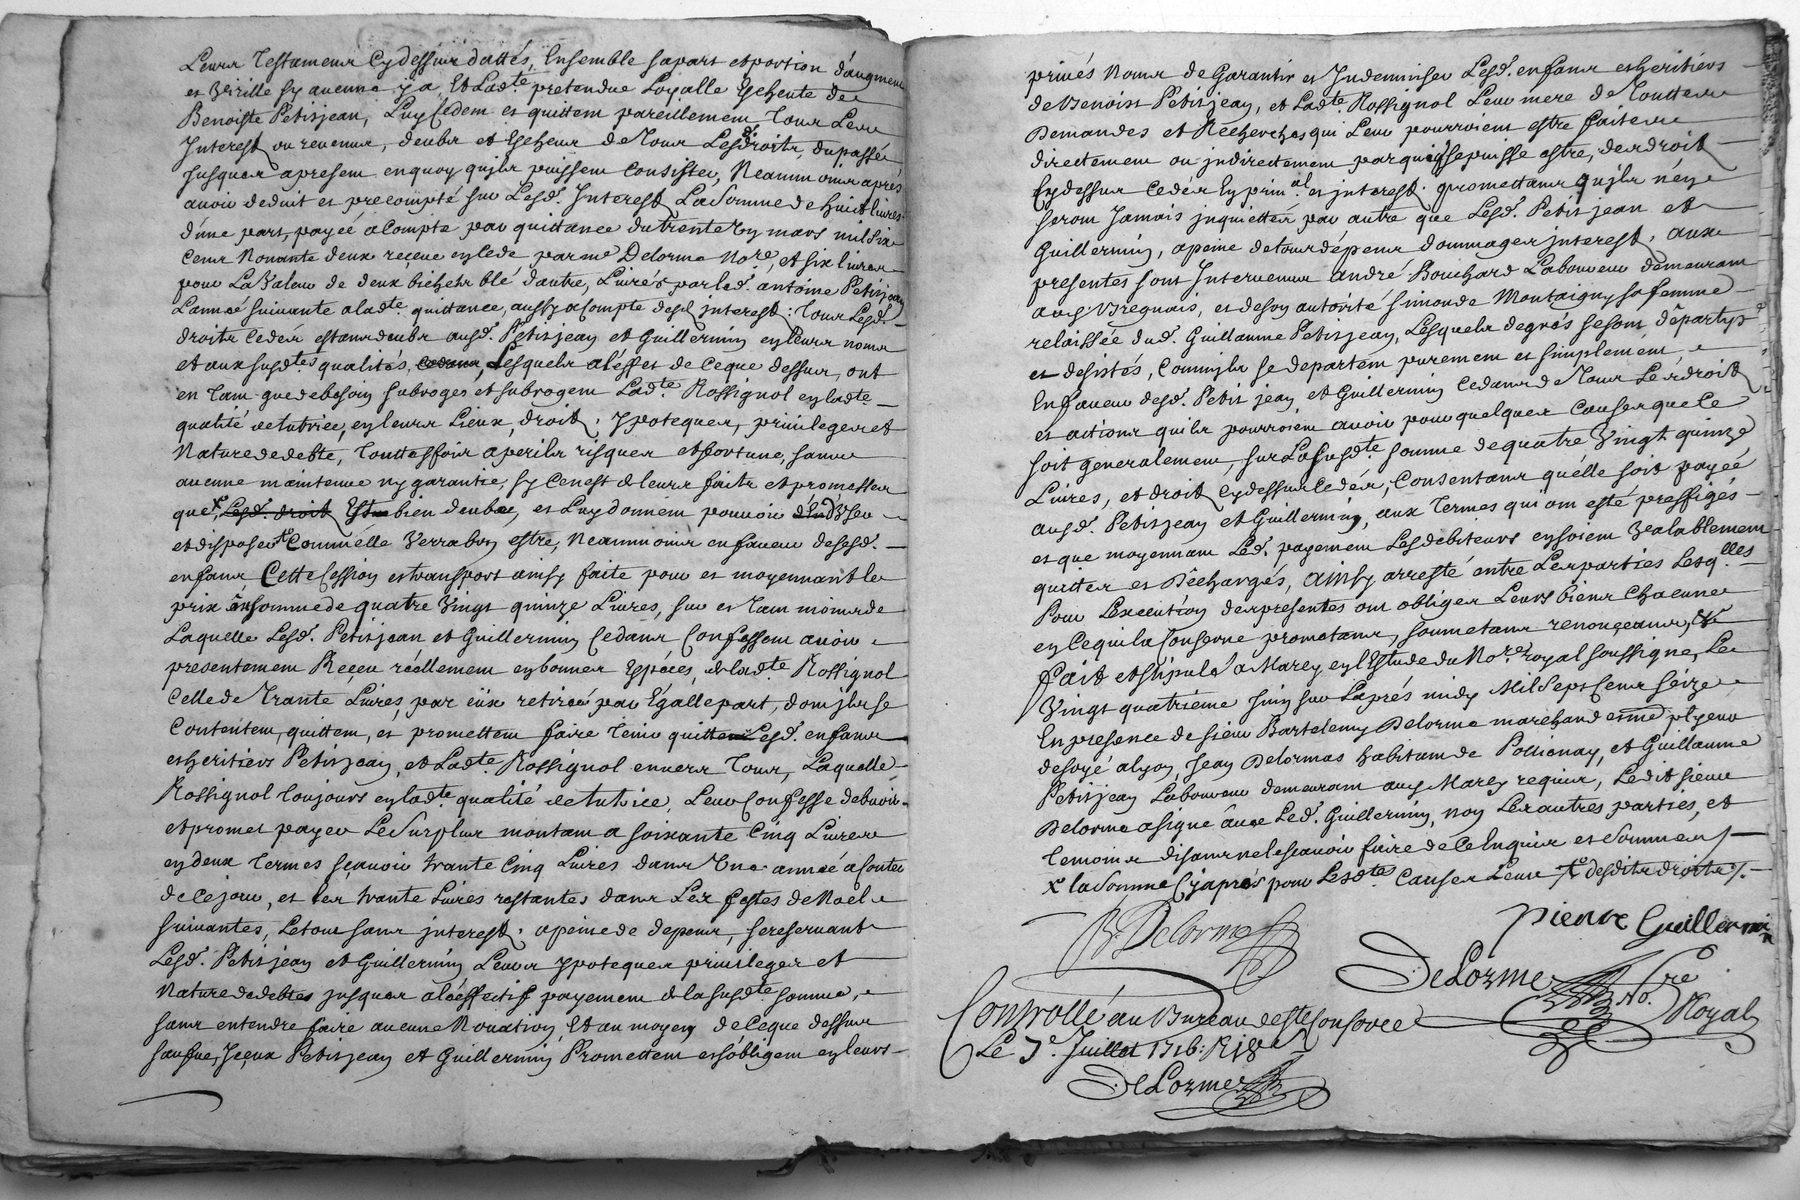 Leurs Testamens Cydessus dattés, Ensemble sapart et portion d'augment
et Virille sy aucune ya, Et Lad.te pretendue Loyalle Escheute de
Benoiste Petitjean, Luy Cedent et quittent pareillement Tous Leurs
Interest ou revenus, deubs et Escheus de Tous Lesd. droits, du passé
Jusques apresent enquoy quils puissent Consister, Neanmoins aprés
avoir deduit et precompté sur Lesd. Interest La Somme de huict livres
d'une part, payée acompte par quittance du trente mars mil six
Cens Nonante deux receue par me Delorme No.re, et six livres
pour La Valeur de deux bichets blé d'autre, Livrés par led. antoine Petitjean
L'année suivante alad.te quittance, aussy acompte desd. interest: Tous Lesd.
droits Cedés estans deubs ausd. Petitjean et Guillermin en leurs noms
et aux susd.tes qualités, Cedans, Lesquels al'effet de Ceque dessus, ont
en Tant que de besoin subrogés et subrogent Lad.te Rossignol en lad.te
qualité de tutrice, en leurs Lieux, droit, ypoteques, privileges et
Nature de debte, Touttesfois aperils risques et fortune, sans
aucune maintenue ny garantie, sy Cenest de leurs faits et promesses
que x, Lesd. droit Est bien deube, et Luy donnent pouvoir d'en User
et disposer Comm'elle Verra bon estre, Neanmoins en faveur desesd.
enfans, Cette Cession et transport ainsy faite pour et moyennant le
prix et somme de quatre Vingt quinze Livres, sur et Tant moins de
Laquelle Lesd. Petitjean et Guillermin Cedans Confessent avoir
presentement Receu réellement en bonnes Espéces, de lad.te Rossignol
Celle de Trante Livres, par eux retirée par Egalle part, dont ils se
Contentent, quittent, et promettent faire Tenir quitte Lesd. enfans
et heritiers Petitjean, et Lad.te Rossignol envers Tous, Laquelle
Rossignol Toujours en lad.te qualité de tutrice, Leur Confesse debvoir
et promet payer Le Surplus montant a soixante Cinq Livres
en deux Termes sçavoir trante Cinq Livres dans Une année a Conter
de Ce jour, et Les trante Livres restantes dans Les festes de Noel
suivantes, Le tout sans interest, apeine de depens, se reservant
Lesd. Petitjean et Guillermin Leurs ypoteques privileges et
Nature de debtes jusques al'éffectif payement de la susd.te somme,
sans entendre faire aucune Novation, Et au moyen de Ceque dessus
sauf Iceux Petitjean et Guillermin Promettent et s'obligent en leurs
privés Noms de Garantir et Indemniser Lesd. enfans et heritiers
de Benoist Petitjean, et Lad.te Rossignol Leur mere de Touttes
Demandes et Recherches qui Leur pourroient estre faites
directement ou indirectement par qui que se puisse estre, des droit
Cydessus Cedés En prin.al et interest, promettans qu'ils n'en
seront Jamais inquiettés par autre que Lesd. Petitjean et
Guillermin, apeine de tous dépens dommages interest, aux
presentes sont Intervenus andré Bouchard Laboureur demeurant
aus Bregnais, et deson autorité simonde Montaigny sa femme
relaissée dud. Guillaume Petitjean, Lesquels degrés se sont départys
et desistés, Comm'ils se departent purement et simplement,
En faveur desd. Petit jean, et Guillermin Cedans de Tous Les droit
et actions quils pourroient avoir pour quelques Causes que Ce
soit generalement, sur La susd.te somme de quatre Vingt quinze
Livres, et droit Cydessus Cedés, Consentans qu'elle soit payée
ausd. Petitjean et Guillermin, aux Termes qui ont esté preffigés
et que moyennant Led. payement Les debiteurs en soient Valablement
quittes et Déchargés, ainsy arresté entre Les parties Lesq.lles
Pour L'execution des presentes ont obligés Leurs biens Chacune
en Ce qui la Conserne prometans, soumetans renonçeans, &c
fait et stipulé a Marcy en l'Estude du No.re royal soussigné, Le
Vingt quatrieme juin sur L'aprés midy Mil Sept Cens seize
En presence de sieur Bartelemy Delorme marchand et me plyeur
de soyé a lyon, Jean Delormas habitant de Pollionay, et Guillaume
Petitjean Laboureur demeurant aus Marcy requier, Ledit sieur
Delorme a signé avec Led. Guillermin, non Les autres parties, et
Temoins Disans ne le sçavoir faire de Ce Enquis et Sommés
x la Somme Cy aprés pour Lesd.te Causes Leur desdits droits
B. Delorme
Pierre Guillermin
De Lorme No.re Royal
Controllé au Bureau de st Consorce
Le 7.e Juillet 1716: R 18 s
De Lorme